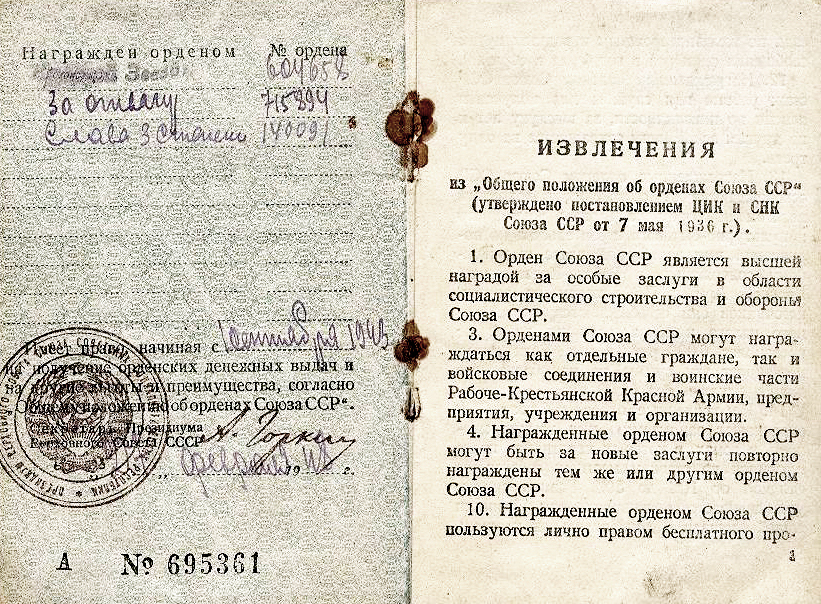 Награжден орденом № ордена
Красной Звезды 604658
За отвагу 715894
Слава 3 степени 140091
Имеет право, начиная с 1 сентября 1943
на получение орденских денежных выдач и
на другие льготы и преимущества, согласно
„Общему положению об орденах Союза ССР“.
Секретарь Президиума
Верховного Совета СССР А. Горкин
февраля 19 48 г.
А № 695361
ИЗВЛЕЧЕНИЯ
из „Общего положения об орденах Союза ССР“
(утверждено постановлением ЦИК и СНК
Союза ССР от 7 мая 1936 г.).
1. Орден Союза ССР является высшей
наградой за особые заслуги в области
социалистического строительства и обороны
Союза ССР.
3. Орденами Союза ССР могут награ-
ждаться как отдельные граждане, так и
войсковые соединения и воинские части
Рабоче-Крестьянской Красной Армии, пред-
приятия, учреждения и организации.
4. Награжденные орденом Союза ССР
могут быть за новые заслуги повторно
награждены тем же или другим орденом
Союза ССР.
10. Награжденные орденом Союза ССР
пользуются лично правом бесплатного про-
1